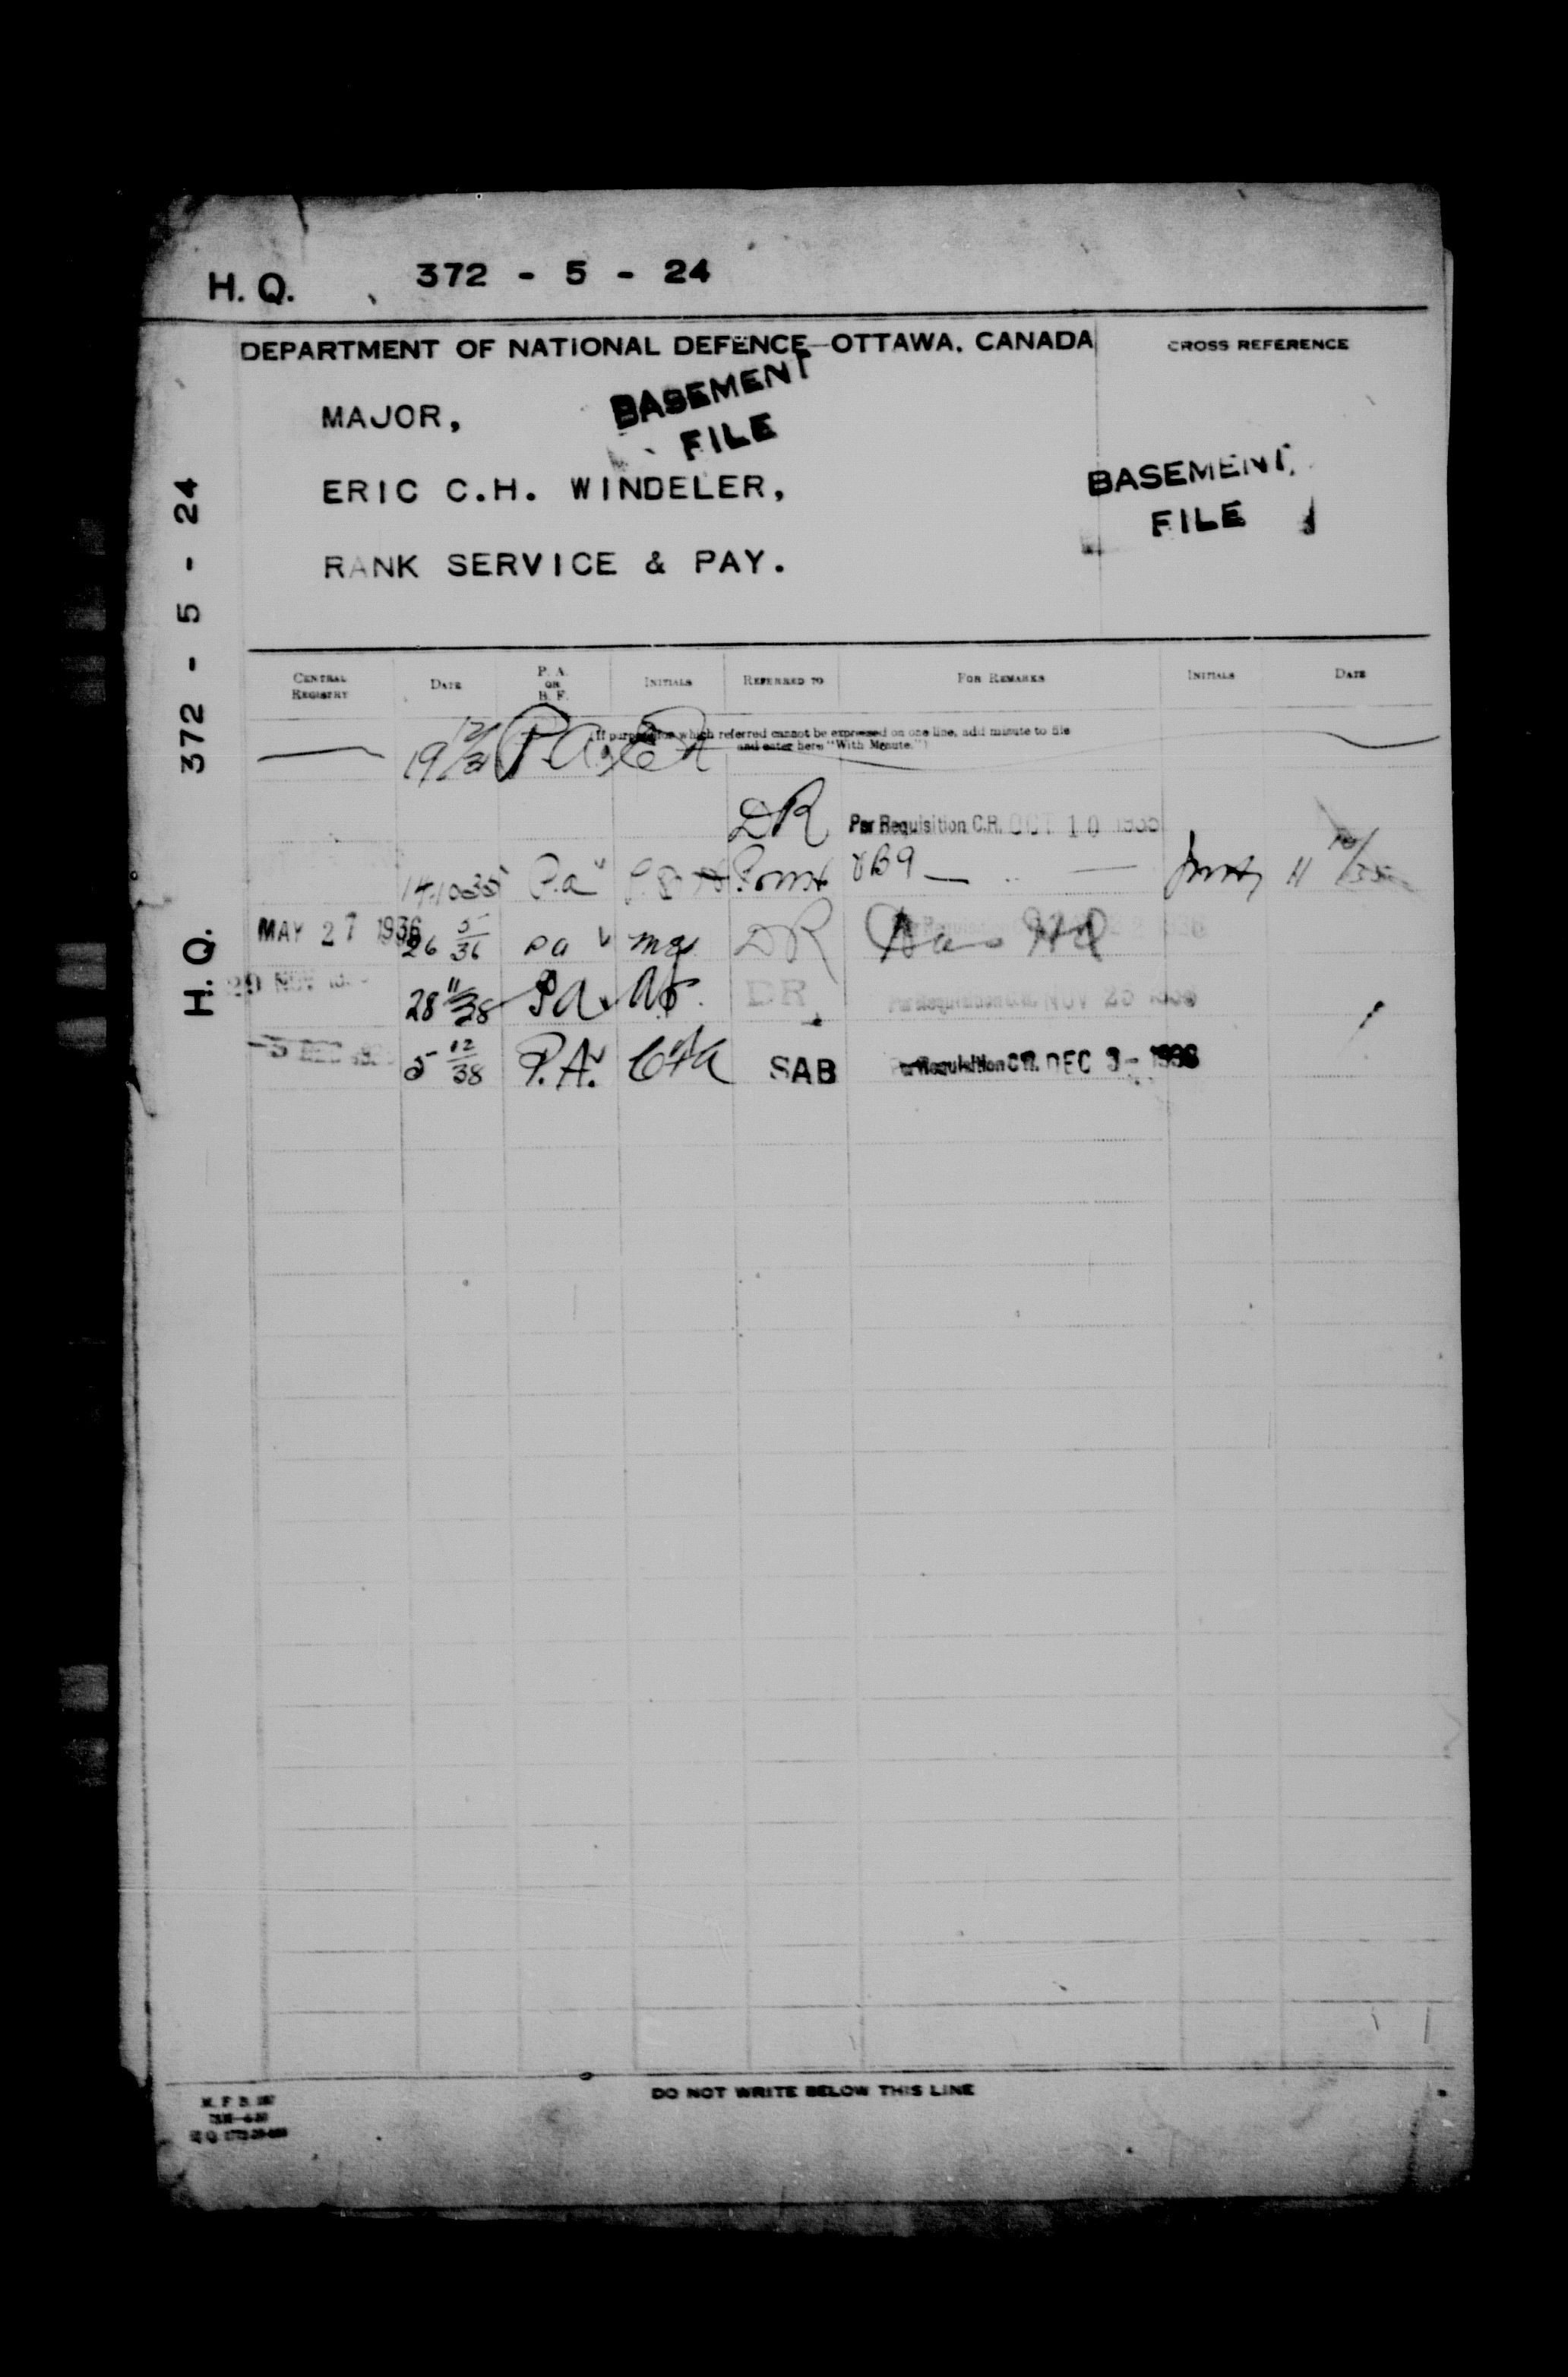 H. Q. 372 - 5 - 24
DEPARTMENT OF NATIONAL DEFENCE—OTTAWA, CANADA
CROSS REFERENCE
MAJOR,
BASEMENT
FILE
ERIC C.H. WINDELER,
BASEMENT
FILE
RANK SERVICE & PAY.
H. Q. 372 - 5 - 24
CENTRAL REGISTRY DATE P. A. OR B. F. INITIALS REFERRED TO FOR REMARKS INITIALS DATE
(If purpose for which referred cannot be expressed on one line, add minute to file
and enter here "With Minute.")
19 12/31 P.A.
DR Per Requisition C.R. OCT 10 1935
14-10-35 P.a
MAY 27 1936 26 5/36 pa DR
28 11/38 PA DR Per Requisition C.R. NOV 25
5 12/38 P.A. SAB Per Requisition C.R. DEC 3- 1938
DO NOT WRITE BELOW THIS LINE